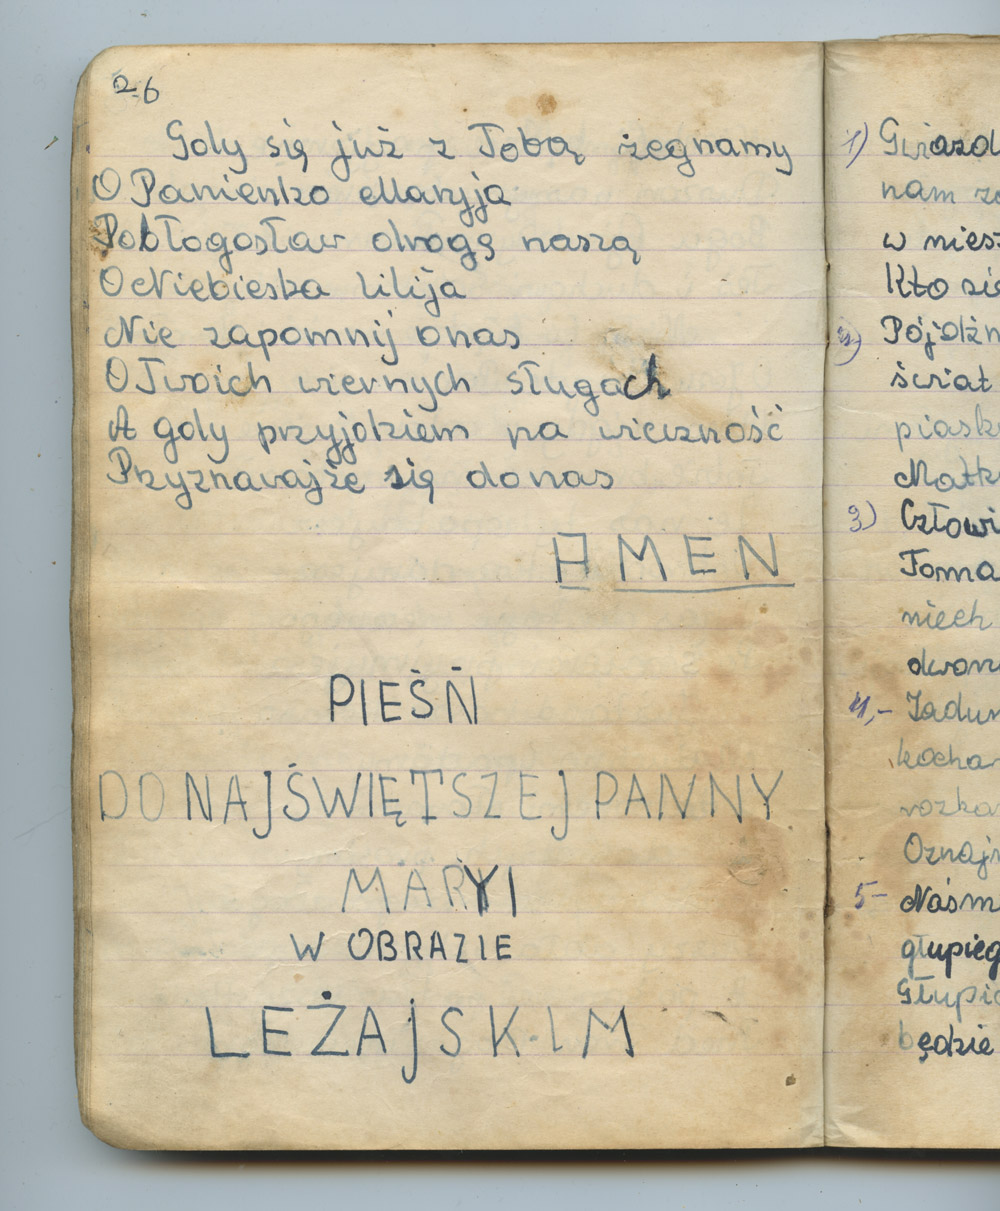 26
Gdy się już z Tobą żegnamy
O Panienko Maryja
Pobłogosław drogę naszą
O Niebieska Lilija
Nie zapomnij onas
O Twoich wiernych sługach
A gdy przyjdziem na wieczność
Przyznawajże się donas
AMEN
PIEŚŃ
DO NAJŚWIĘTSZEJ PANNY
MARYI
W OBRAZIE
LEŻAJSKIM
1) Gwiazd
nam za
w niesz
Kto się
2) Pójdźm
świat
piask
Matk
3) Człowi
Toma
niech
dwon
4,- Jadum
kochan
rozka
Oznajm
5- Naśm
głupieg
Głupi
będzie